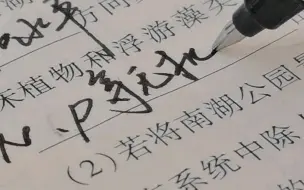 方向
床植物和浮游藻类
N、P等无机
(2)若将南湖公园
系统中除